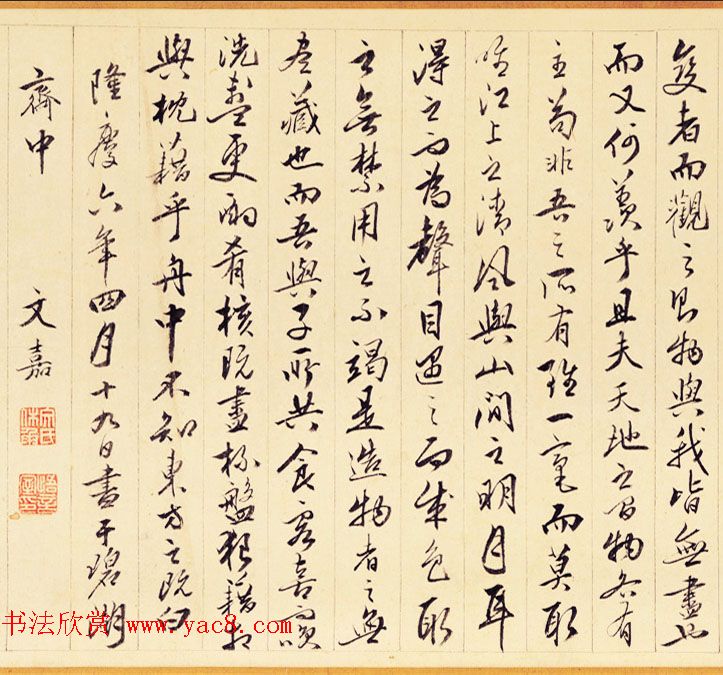 變者而觀之則物與我皆無盡也
而又何羨乎且夫天地之間物各有
主苟非吾之所有雖一毫而莫取
唯江上之清風與山間之明月耳
得之而為聲目遇之而成色取
之無禁用之不竭是造物者之無
盡藏也而吾與子所共食客喜而笑
洗盞更酌肴核既盡杯盤狼藉相
與枕藉乎舟中不知東方之既白
隆慶六年四月十九日書于碧湖
齋中 文嘉
书法欣赏www.yac8.com